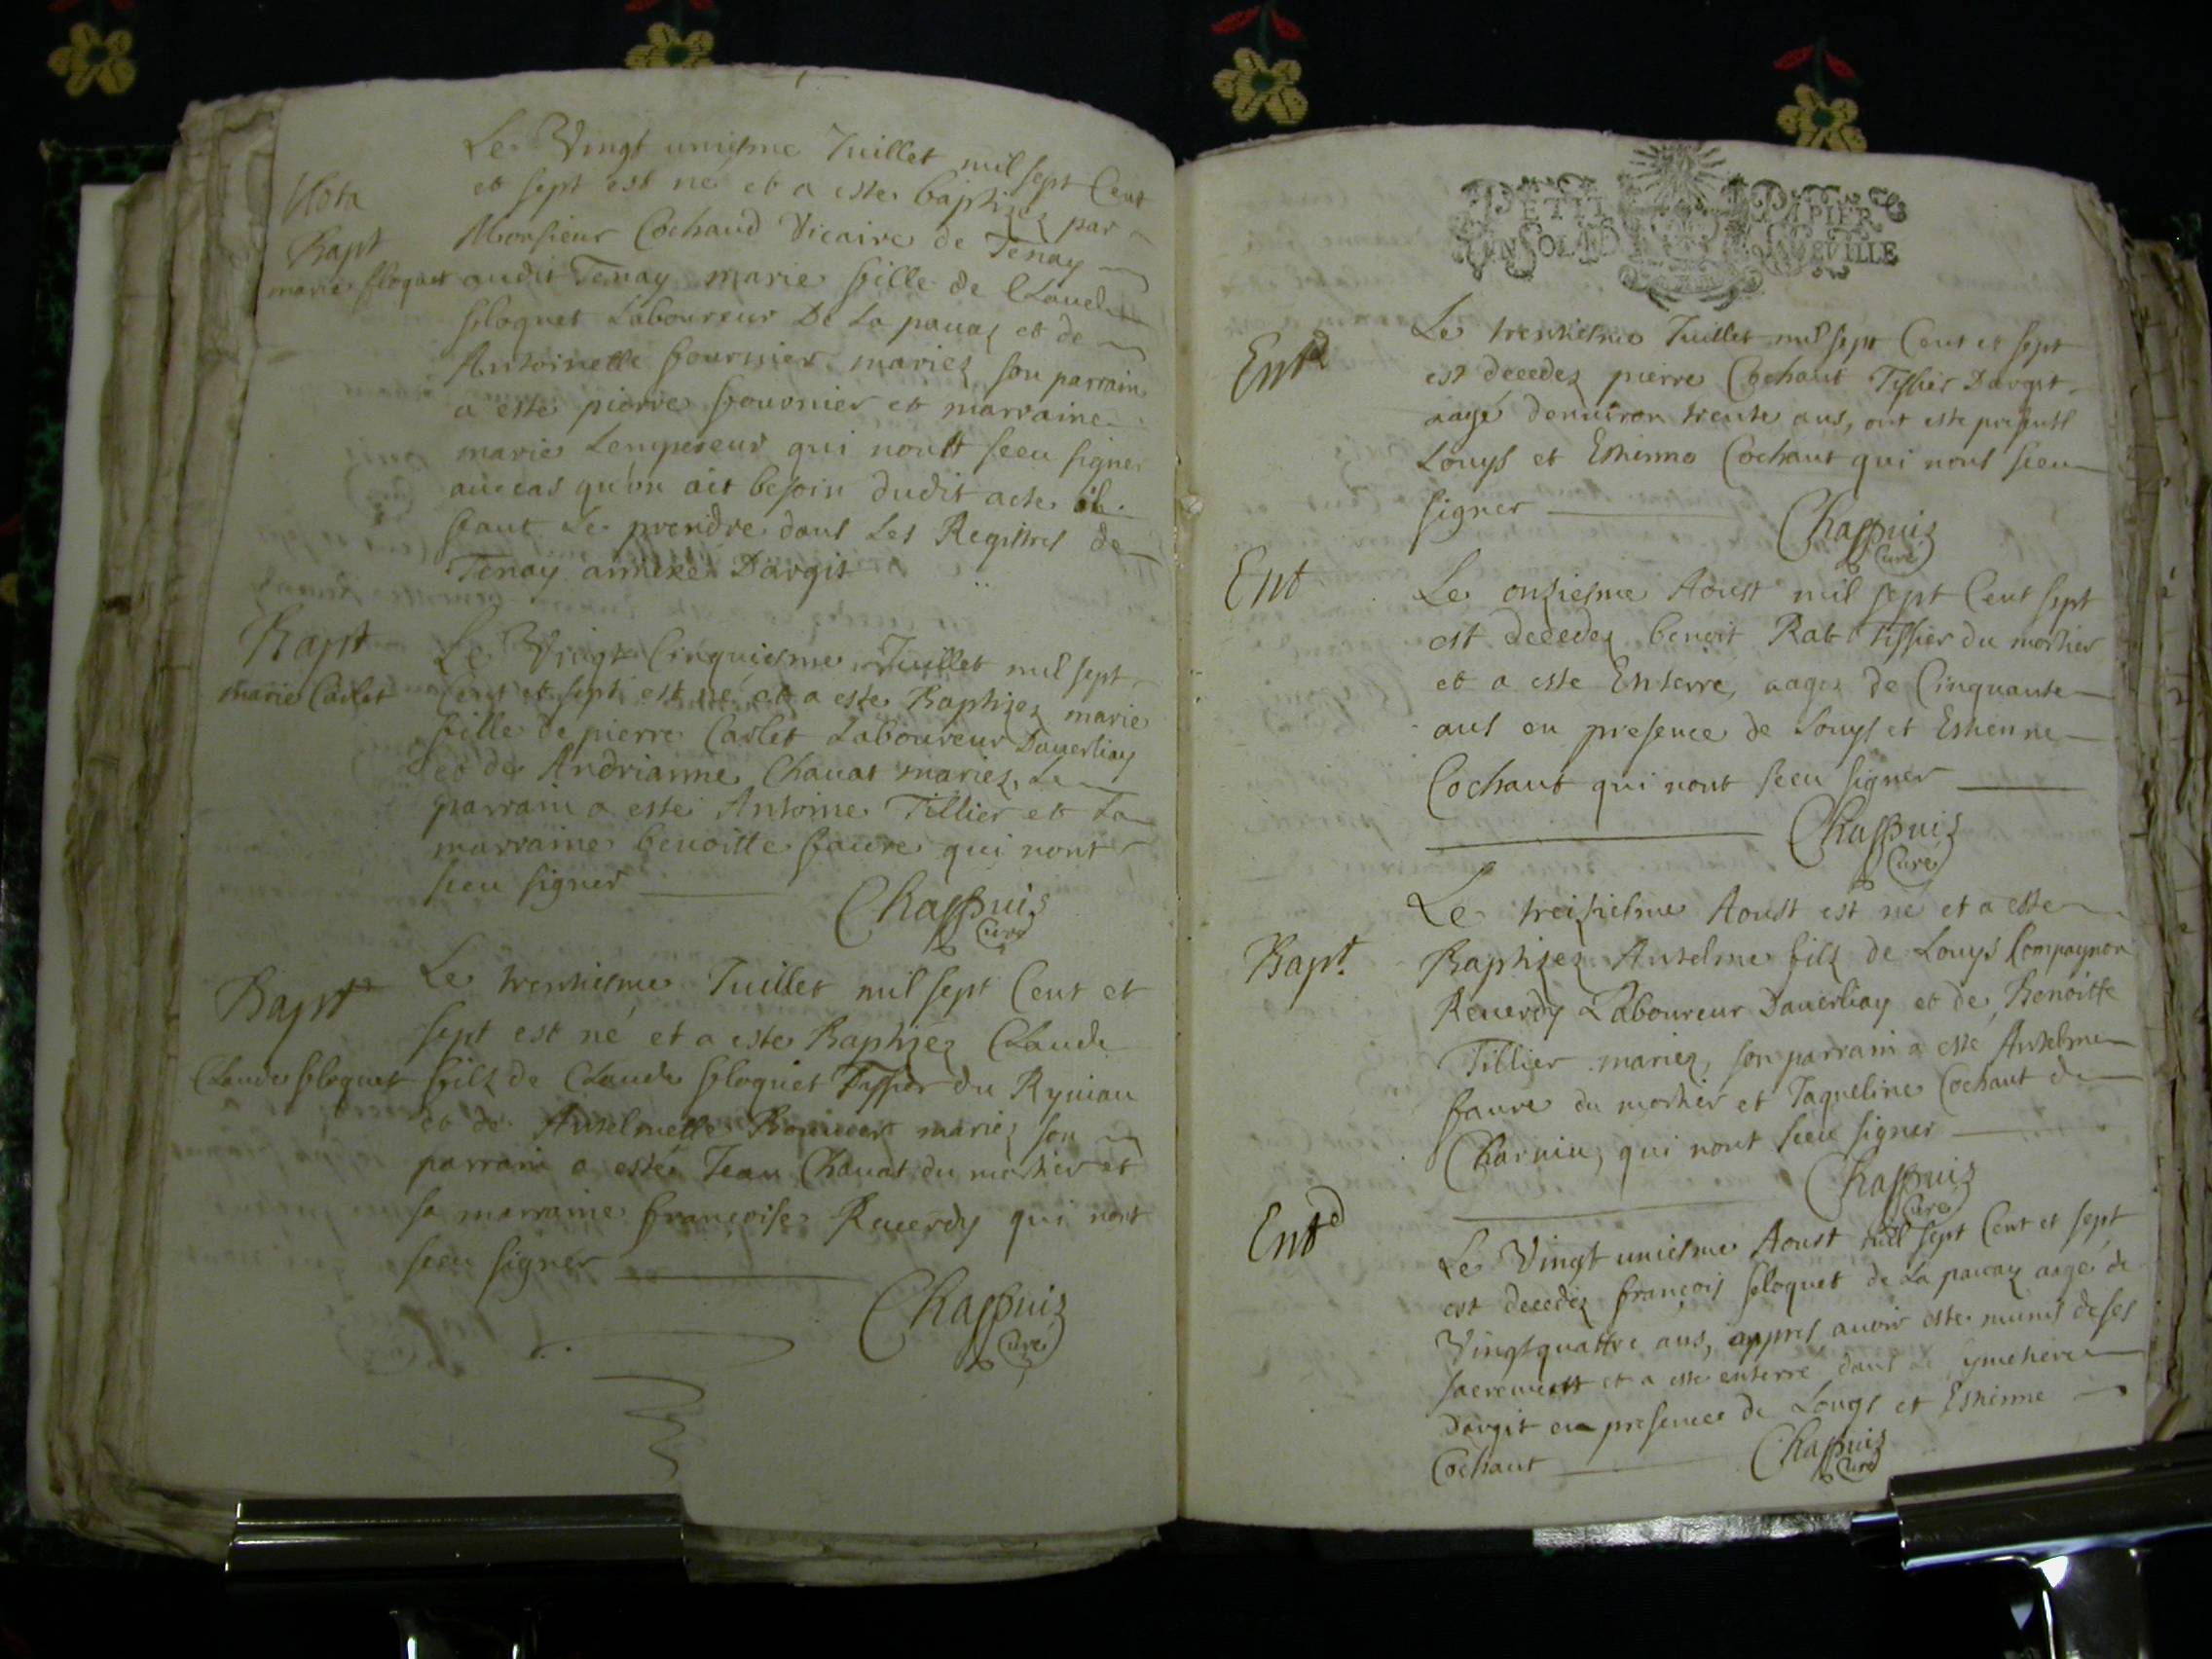 Le Vingt uniesme Juillet mil sept Cent
Nota
et sept est né et a este baptizez par
Bapt
Monsieur Cochaud Vicaire de Tenay
marie floquet
audit Tenay marie fille de Claude
floquet Laboureur De La pauaz et de
Antoinette fournier mariez son parrain
a este pierre fournier et marraine
marie Lempereur qui nontt sceu signer
aucas qu'on ait besoin dudit acte il
faut Le prendre dans Les Registres de
Tenay annexe Dargit
Bapt
marie Carlet
Le Vingt Cinquiesme Juillet mil sept
Cent et sept est né et a este Baptizez marie
fille de pierre Carlet Laboureur Dauerliay
et de Andrianne Chauat mariez, Le
parrain a esté Antoine Tillier et La
marraine benoitte faure qui nont
sceu signer
Chappuis
Curé
Bapt
Claude floquet
Le trentiesme Juillet mil sept Cent et
sept est né et a este Baptizez Claude
filz de Claude floquet Tissier du Ryuiau
et de Antelmette mariez son
parrain a esté Jean Chauat du mortier et
sa marraine françoise Reuerdy qui nont
sceu signer
Chappuis
Curé
PETIT PAPIER
UN SOL LA FEVILLE
Ent
Le trentiesme Juillet mil sept Cent et sept
est decedez pierre Cochaut Tissier Dargit
aagé denuiron trente ans, ont este presentt
Louys et Estienne Cochaut qui nont sceu
signer
Chappuis
Curé
Ent
Le onziesme Aoust mil sept Cent sept
est decedez benoit Rat tissier du mortier
et a este Enterré, aagez de Cinquante
ans en presence de Louys et Estienne
Cochaut qui nont sceu signer
Chappuis
Curé
Bapt
Le treiziesme Aoust est né et a este
Baptizez Antelme filz de Louys Compagnon
Reuerdy Laboureur Dauerliay et de Benoitte
Tillier mariez, son parrain a esté Antelme
faure du mortier et Jaqueline Cochaut de
Charuiu, qui nont sceu signer
Chappuis
Curé
Ent
Le Vingt uniesme Aoust mil sept Cent et sept
est decedez françois floquet de La pauaz aagé de
Vingtquattre ans, appres auoir este munis de ses
sacrementt et a este enterré dans Le ymetiere
Dargit en presence de Louys et Estienne
Cochaut
Chappuis
Curé